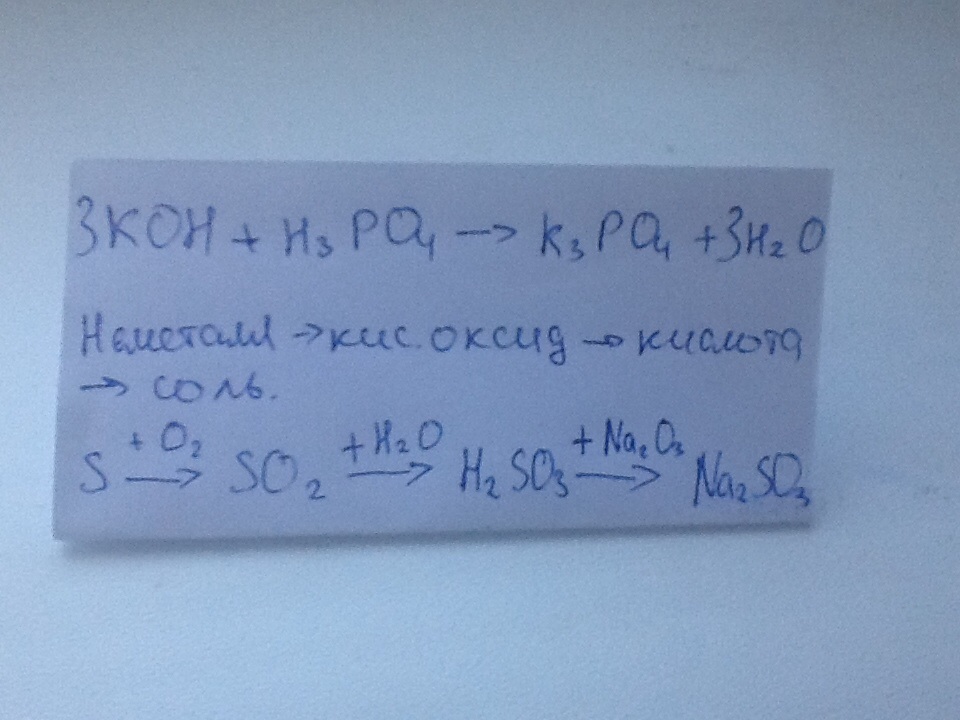 3KOH + H₃PO₄ → K₃PO₄ + 3H₂O
Неметалл → кис. оксид → кислота
→ соль.
S +O₂→ SO₂ +H₂O→ H₂SO₃ +Na₂O₃→ Na₂SO₃